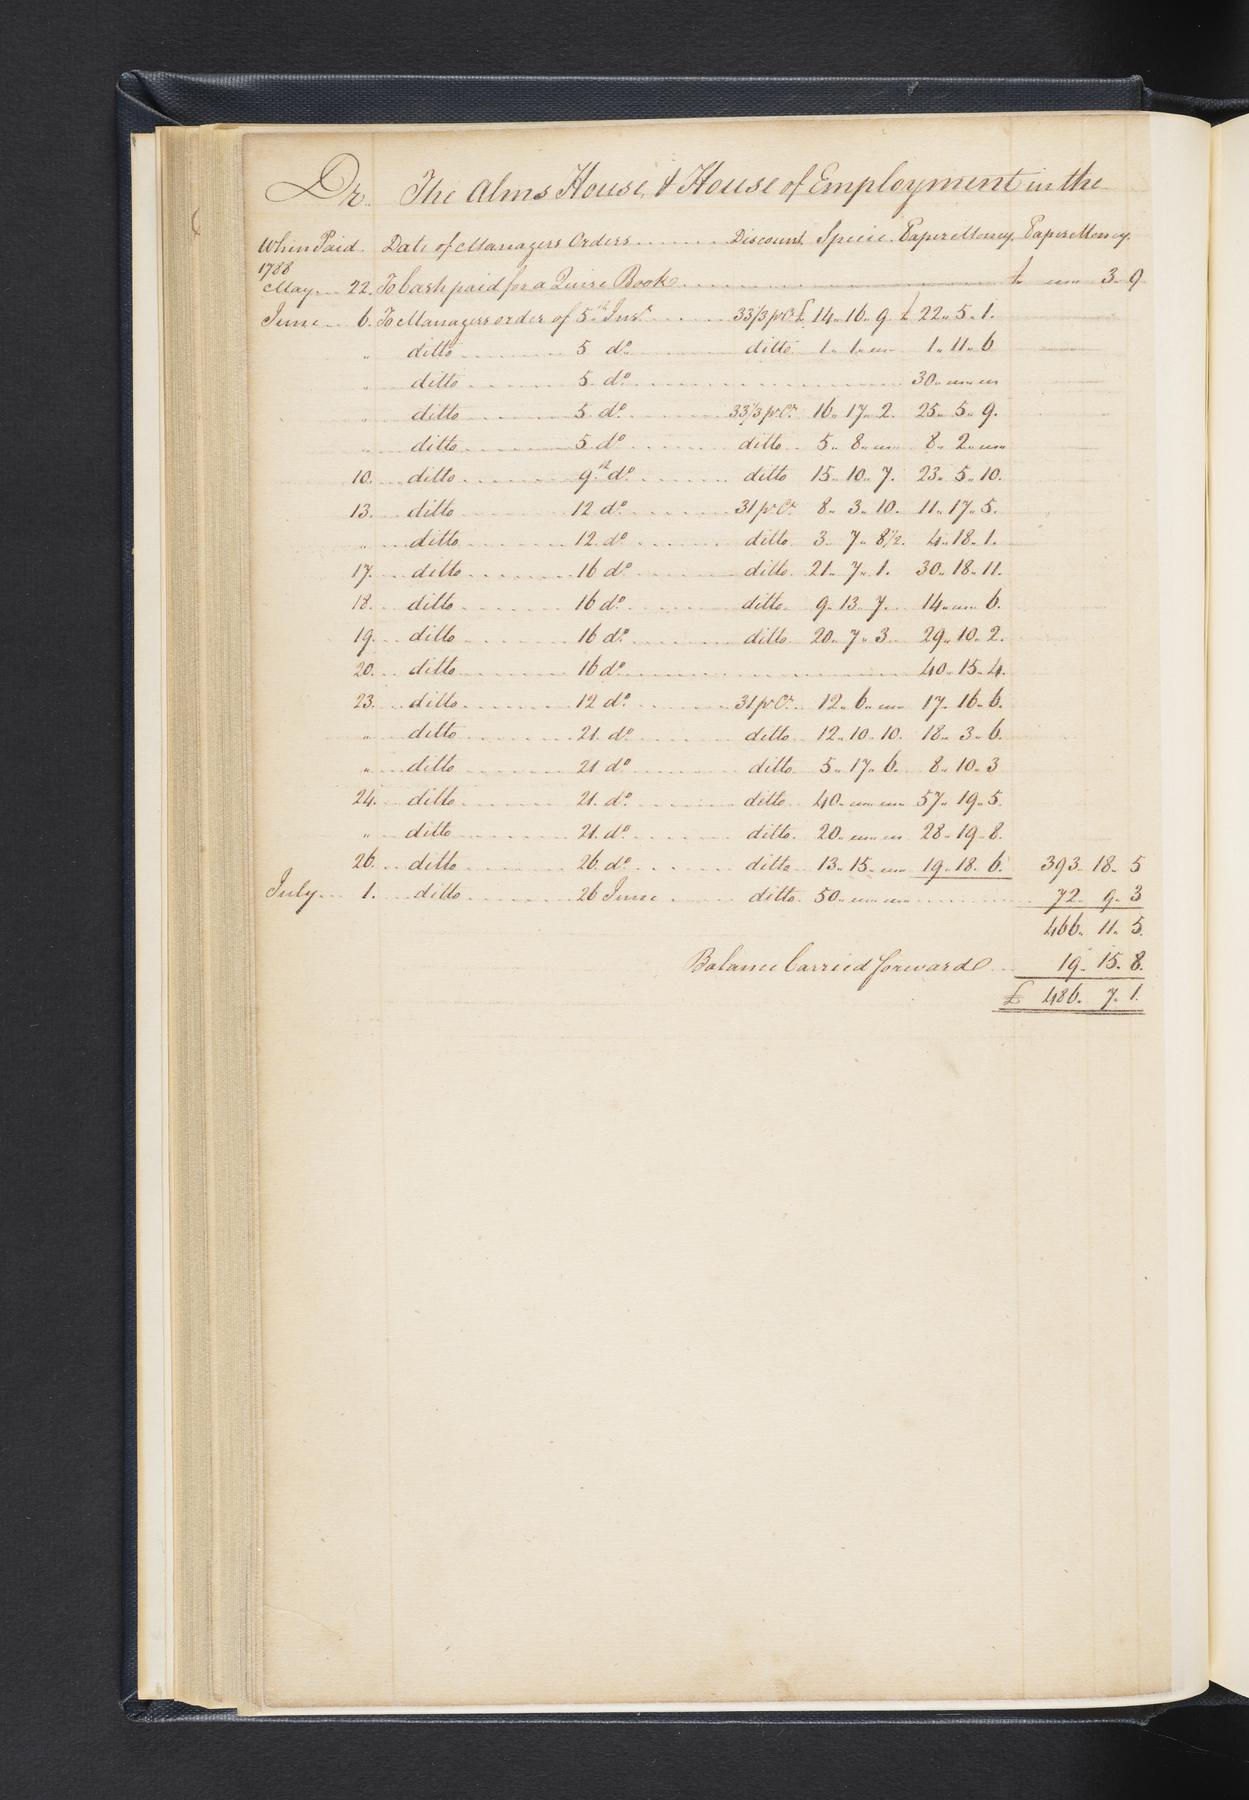 Dr. The Alms House, & House of Employment in the
When Paid Date of Managers Orders ........ Discount. Specie. Paper Money. Paper Money.
1788
May.... 22. To Cash paid for a Quire Book ........ £ " 3.. 9
June... 6. To Managers order of 5th Inst. .... 33⅓ pr Ct £ 14.. 16.. 9. £ 22.. 5.. 1.
" ditto ........ 5 do ........ ditto 1.. 1.. " 1.. 11.. 6
" ditto ........ 5. do ........ 30.. " "
" ditto ........ 5. do ........ 33⅓ pr Ct 16.. 17.. 2. 25.. 5.. 9.
" ditto ........ 5 do ........ ditto .. 5.. 8.. " 8.. 2.. "
10. ... ditto ........ 9th do ........ ditto 15.. 10.. 7. 23.. 5.. 10.
13. ... ditto ........ 12 do ........ 31 pr Ct 8.. 3.. 10. 11.. 17.. 5.
" ... ditto ........ 12. do ........ ditto 3.. 7.. 8½. 4.. 18.. 1.
17. ... ditto ........ 16 do ........ ditto. 21.. 7.. 1. 30.. 18.. 11.
18. ... ditto ........ 16 do ........ ditto. 9.. 13.. 7. 14.. " 6.
19. ... ditto ........ 16 do ........ ditto 20.. 7.. 3. 29.. 10.. 2.
20. ... ditto ........ 16 do ........ 40.. 15.. 4.
23. ... ditto ........ 12 do ........ 31 pr Ct .. 12.. 6.. " 17.. 16.. 6.
" ... ditto ........ 21. do ........ ditto .. 12.. 10.. 10. 18.. 3.. 6.
" ... ditto ........ 21 do ........ ditto .. 5.. 17.. 6. 8.. 10.. 3
24. ... ditto ........ 21. do ........ ditto .. 40.. " " 57.. 19.. 5.
" ... ditto ........ 21. do ........ ditto. 20.. " " 28.. 19.. 8.
26. ... ditto ........ 26. do ........ ditto. 13.. 15.. " 19.. 18.. 6. 393.. 18.. 5
July ... 1. ... ditto ........ 26 June ........ ditto. 50.. " " ........ 72.. 9.. 3
466.. 11.. 5.
Balance Carried forward ... 19.. 15.. 8.
£ 486.. 7.. 1.